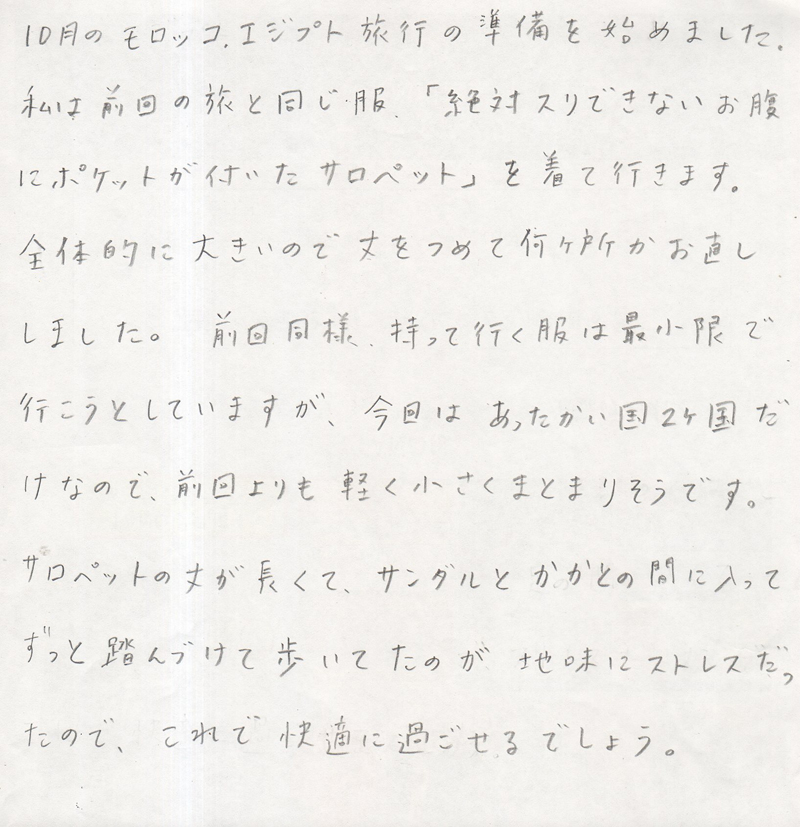 10月のモロッコ、エジプト旅行の準備を始めました。
私は前回の旅と同じ服、「絶対スリできないお腹
にポケットが付いたサロペット」を着て行きます。
全体的に大きいので丈をつめて何ヶ所かお直し
しました。 前回同様、持って行く服は最小限で
行こうとしていますが、今回はあったかい国2ヶ国だ
けなので、前回よりも軽く小さくまとまりそうです。
サロペットの丈が長くて、サンダルとかかとの間に入って
ずっと踏んづけて歩いてたのが地味にストレスだっ
たので、これで快適に過ごせるでしょう。